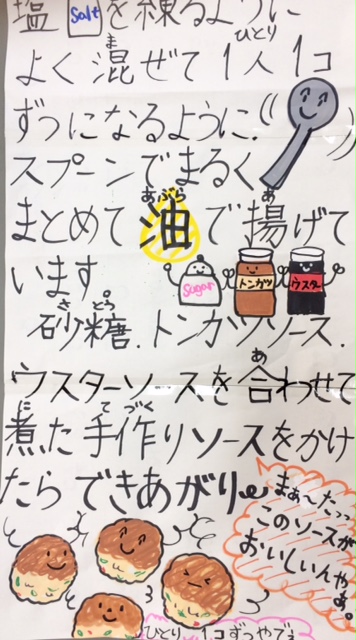 塩 Salt を練るように
よく混ぜて1人1コ
ずつになるように、
スプーンでまるく
まとめて油で揚げて
います。
Sugar トンカツ ウスター
砂糖、トンカツソース、
ウスターソースを合わせて
煮た手作りソースをかけ
たらできあがり
まぁ〜たっ
このソースが
おいしいんやぁ。
ひとり 1コずつやで